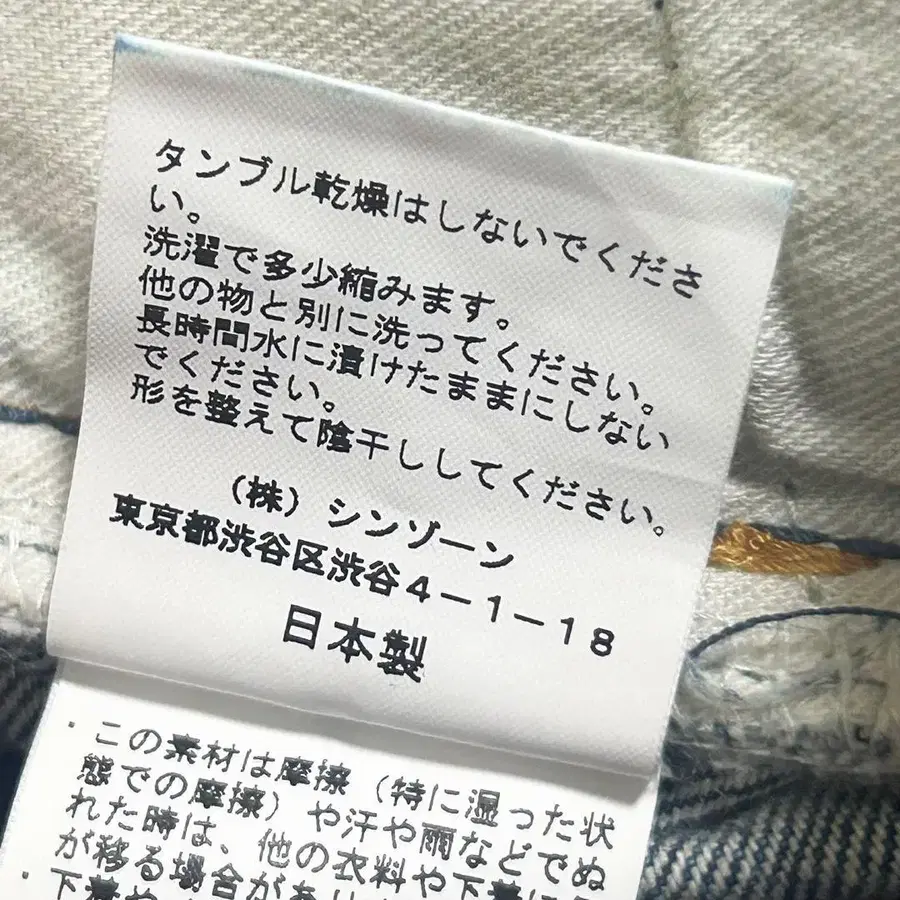 タンブル乾燥はしないでくださ
い。
洗濯で多少縮みます。
他の物と別に洗ってください。
長時間水に漬けたままにしない
でください。
形を整えて陰干ししてください。
（株）シンゾーン
東京都渋谷区渋谷４－１－１８
日本製
・この素材は摩擦（特に湿った状
態での摩擦）や汗や雨などでぬ
れた時は、他の衣料や下着に
が移る場合があり
・下着や